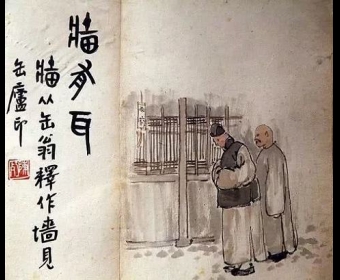 牆有耳
牆从缶翁釋作墻見
缶廬印